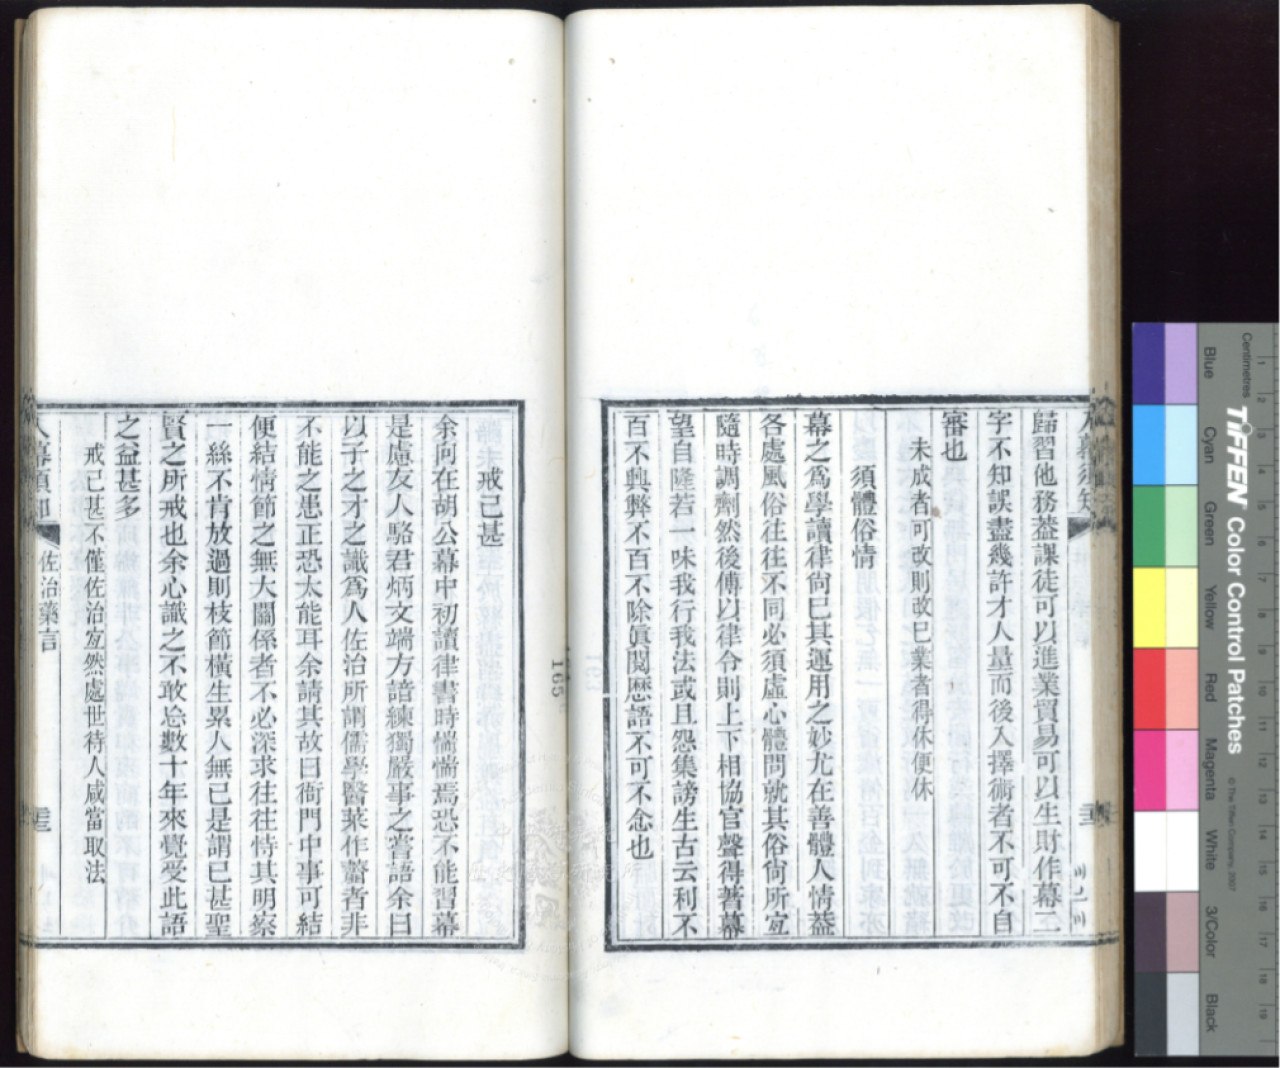 入幕須知
歸習他務葢課徒可以進業貿易可以生財作幕二
字不知誤盡幾許才人量而後入擇術者不可不自
審也
未成者可改則改已業者得休便休
須體俗情
幕之爲學讀律尙已其運用之妙尤在善體人情葢
各處風俗往往不同必須虛心體問就其俗尙所宜
隨時調劑然後傅以律令則上下相協官聲得著幕
望自隆若一味我行我法或且怨集謗生古云利不
百不興弊不百不除眞閱歷語不可不念也
戒已甚
余向在胡公幕中初讀律書時惴惴焉恐不能習幕
是慮友人駱君炳文端方諳練獨嚴事之嘗語余曰
以子之才之識爲人佐治所謂儒學醫菜作虀者非
不能之患正恐太能耳余請其故曰衙門中事可結
便結情節之無大關係者不必深求往往恃其明察
一絲不肯放過則枝節橫生累人無已是謂已甚聖
賢之所戒也余心識之不敢忘數十年來覺受此語
之益甚多
戒已甚不僅佐治宜然處世待人咸當取法
入幕須知
佐治藥言
165
Centimetres
TIFFEN Color Control Patches
© The Tiffen Company, 2007
Blue
Cyan
Green
Yellow
Red
Magenta
White
3/Color
Black